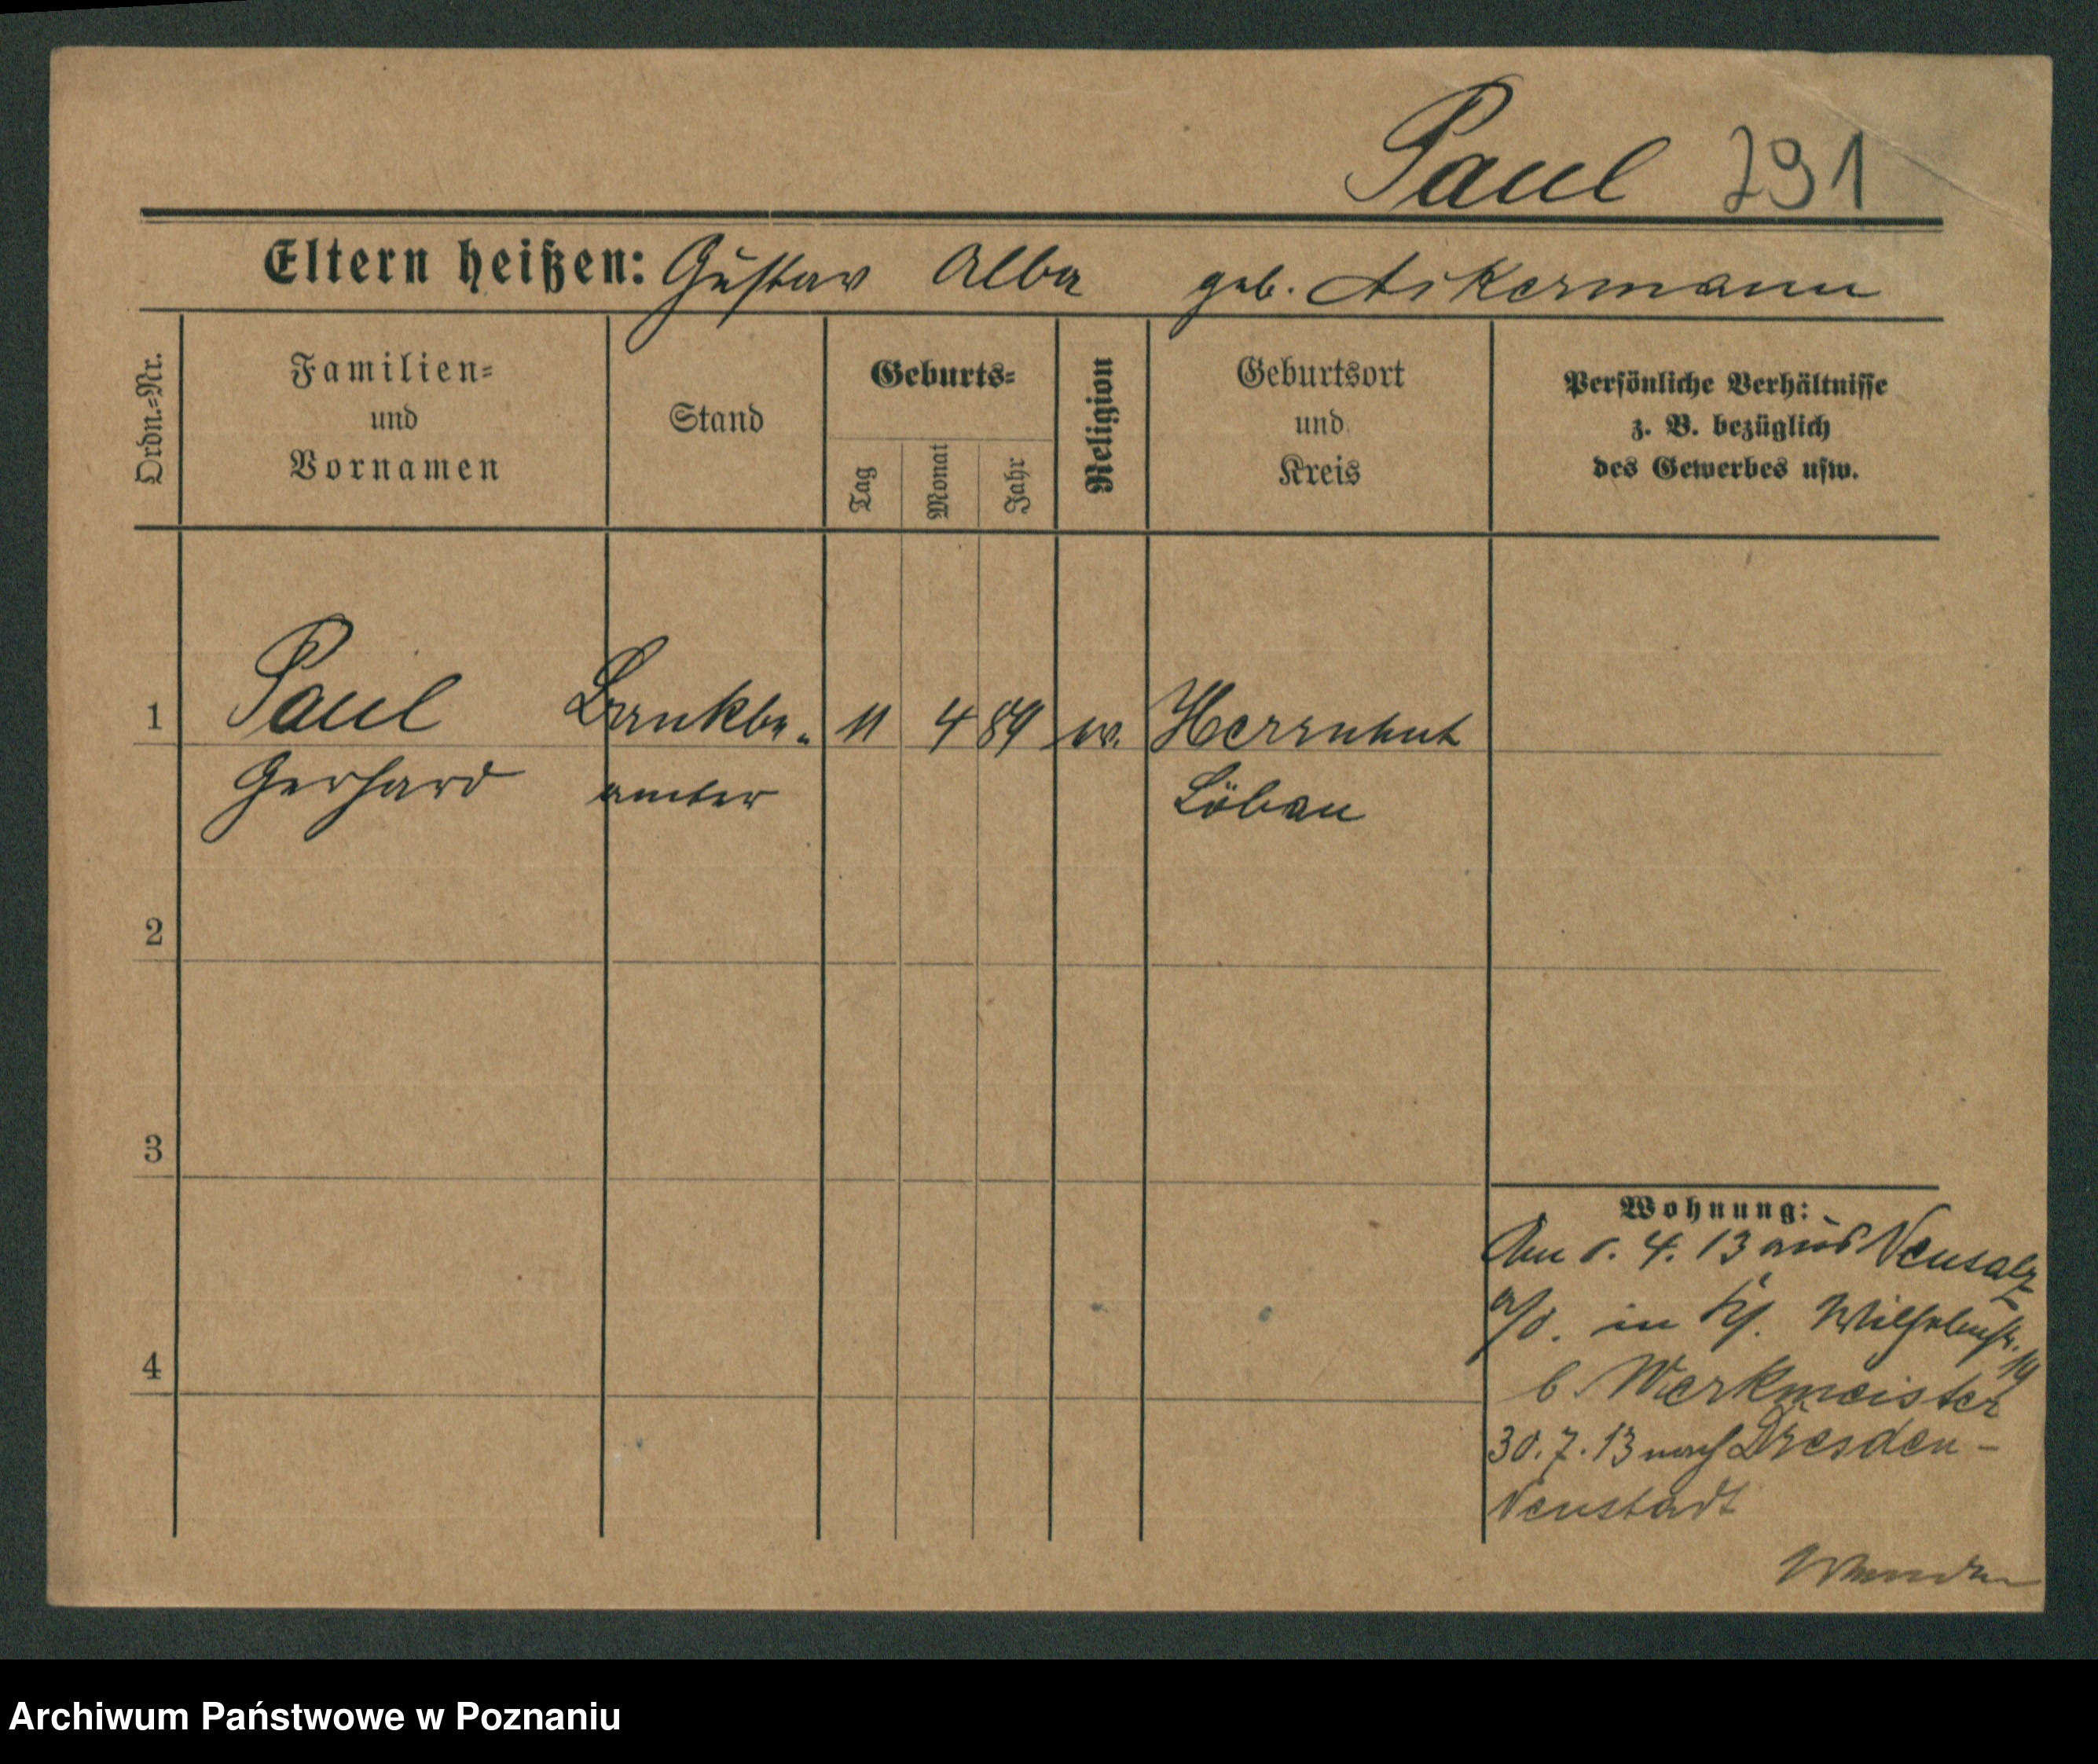 Paul 291
Eltern heißen: Gustav Alba geb. Askermann
Ordn.-Nr.
Familien-
und
Vornamen
Stand
Geburts-
Tag
Monat
Jahr
Religion
Geburtsort
und
Kreis
Persönliche Verhältnisse
z. B. bezüglich
des Gewerbes usw.
1 Paul Bankbe- 11 4 89 ev. Herrnhut
Gerhard amter Löbau
2
3
4
Wohnung:
Am 1. 4. 13 aus Neusalz
a/O. in Wilhelmstr. 19
b. Werkmeister
30. 7. 13 nach Dresden-
Neustadt
Archiwum Państwowe w Poznaniu